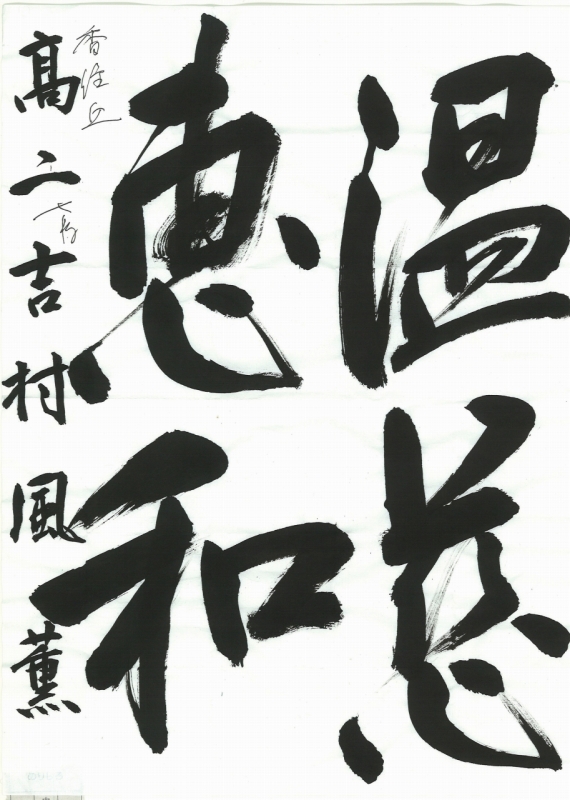 温慈
恵和
香住丘
高二 吉村風薫